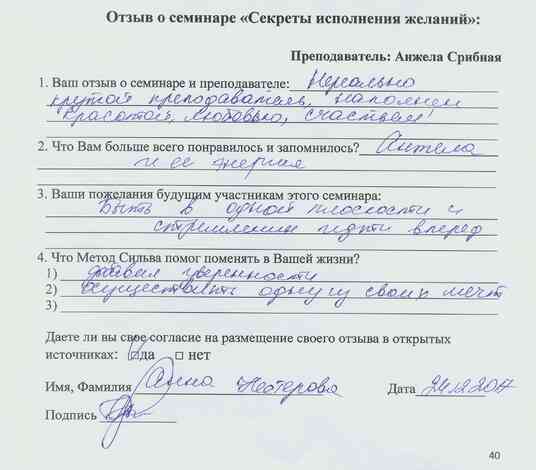 Отзыв о семинаре «Секреты исполнения желаний»:
Преподаватель: Анжела Срибная
1. Ваш отзыв о семинаре и преподавателе: Нереально
крутой преподаватель, наполнен
красотой, любовью, счастьем!
2. Что Вам больше всего понравилось и запомнилось? Анжела
и ее энергия
3. Ваши пожелания будущим участникам этого семинара:
Быть в одной плоскости и
стремлении идти вперед
4. Что Метод Сильва помог поменять в Вашей жизни?
1) добавил уверенности
2) осуществить одну из своих мечт
3)
Даете ли вы свое согласие на размещение своего отзыва в открытых
источниках: □да □ нет
Имя, Фамилия Анна Нестерова Дата
Подпись
40